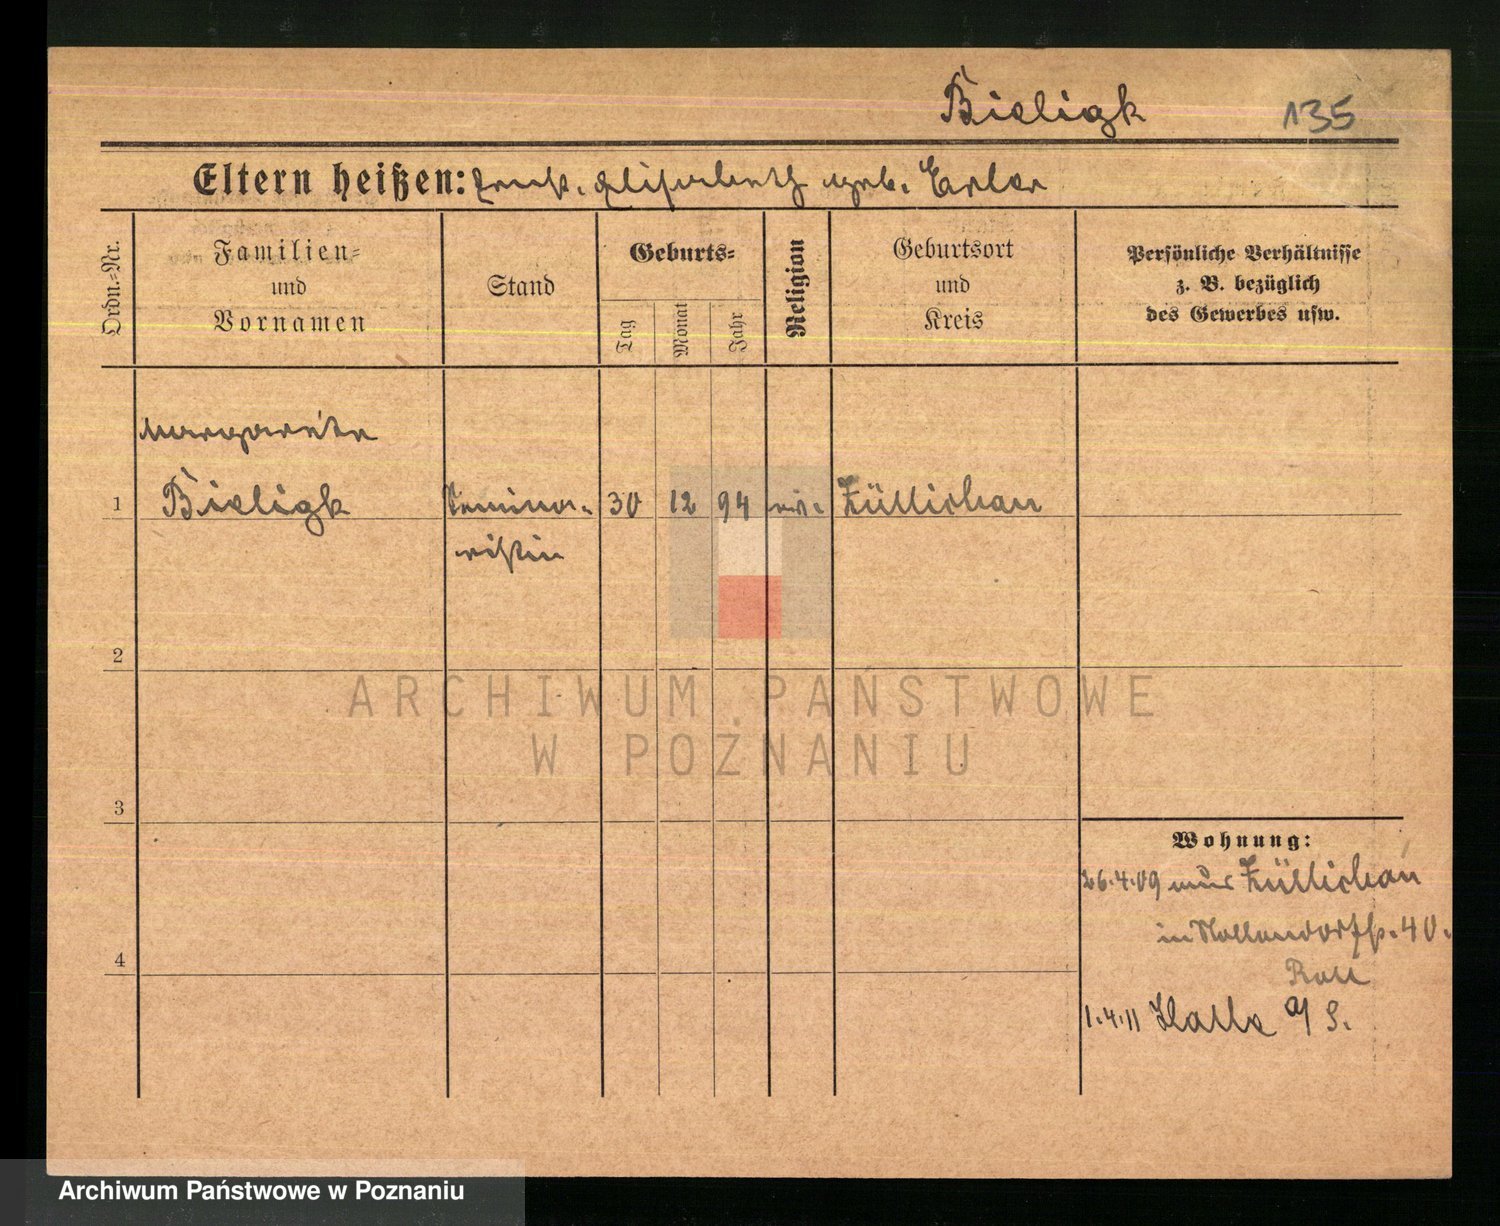 Bieligk 135
Eltern heißen: Ernst. Elisabeth geb. Erler
Ordn.-Nr.
Familien-
und
Vornamen
Stand
Geburts-
Tag
Monat
Jahr
Religion
Geburtsort
und
Kreis
Persönliche Verhältnisse
z. B. bezüglich
des Gewerbes usw.
Margarete
1 Bieligk Semina- 30 12 94 Züllichau
ristin
2
3
4
Wohnung:
26.4.09 aus Züllichau
in Nollendorfstr. 40.
1.4.11 Halle a/S.
ARCHIWUM PAŃSTWOWE
W POZNANIU
Archiwum Państwowe w Poznaniu